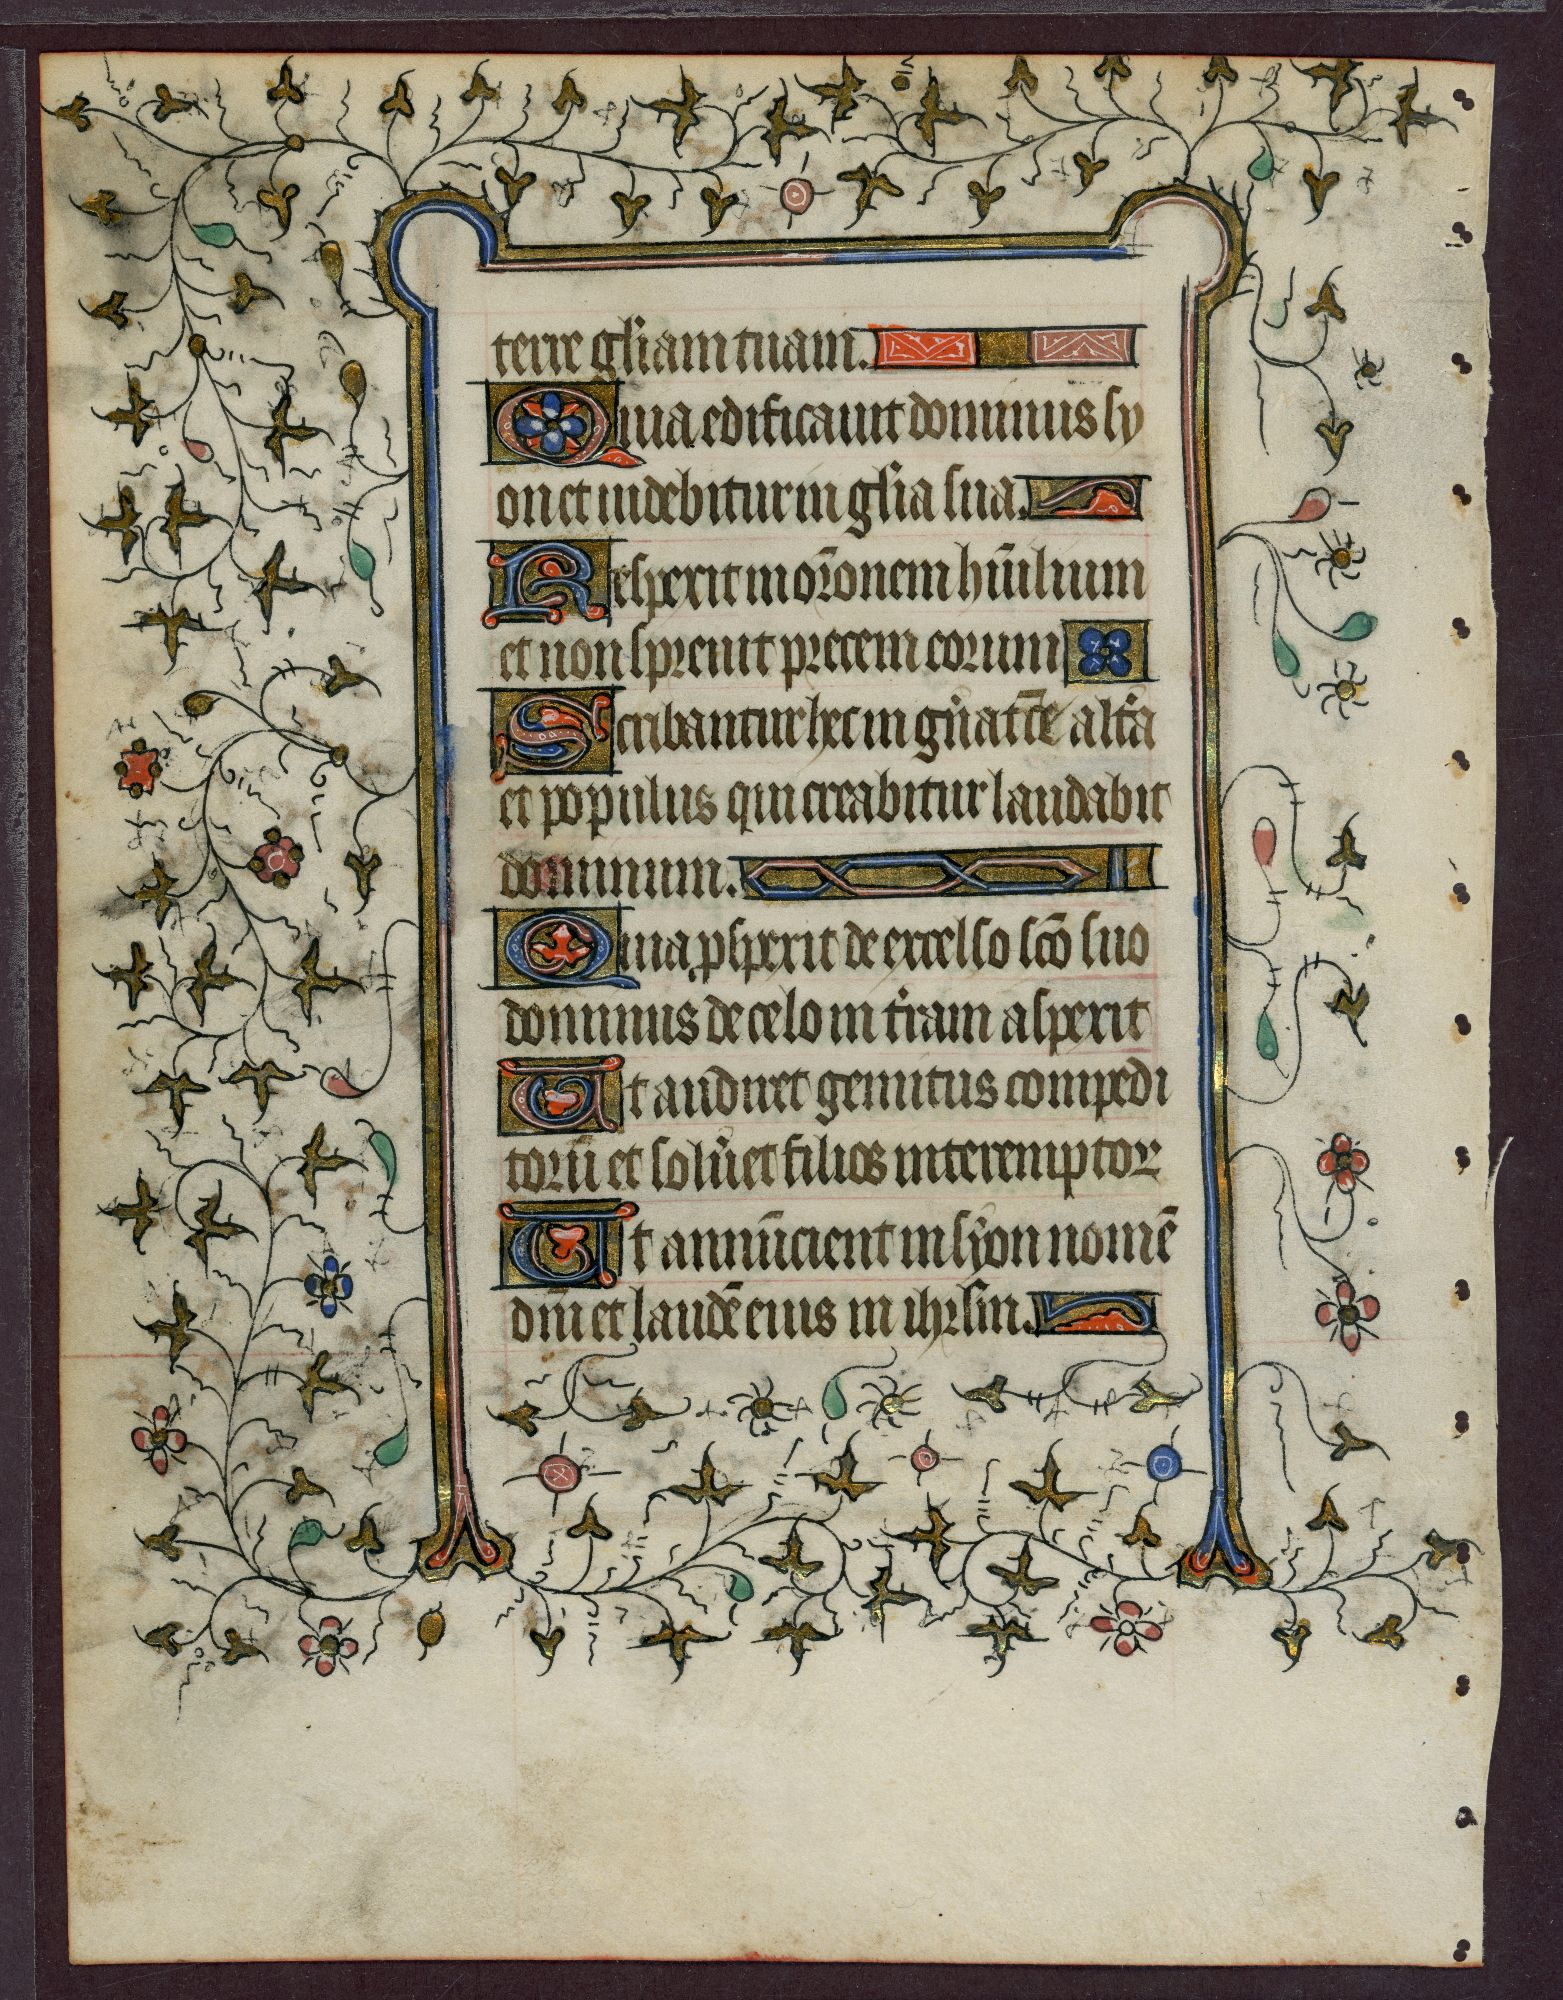 terre gl̃iam tuam.
Quia edificauit dominus sy
on et uidebitur in gl̃ia sua.
Respexit in or̃onem hũilium
et non spreuit precem eorum
Scribantur hec in gñatc̃e alt̃a
et populus qui creabitur laudabit
dominum.
Quia ꝓspexit de excelso sc̃o suo
dominus de celo in t̃ram aspexit
Ut audiret gemitus compedi
torũ et solũet filios interemptor
Ut annũcient in syon nomẽ
dñi et laudẽ eius in ihrlm̃.